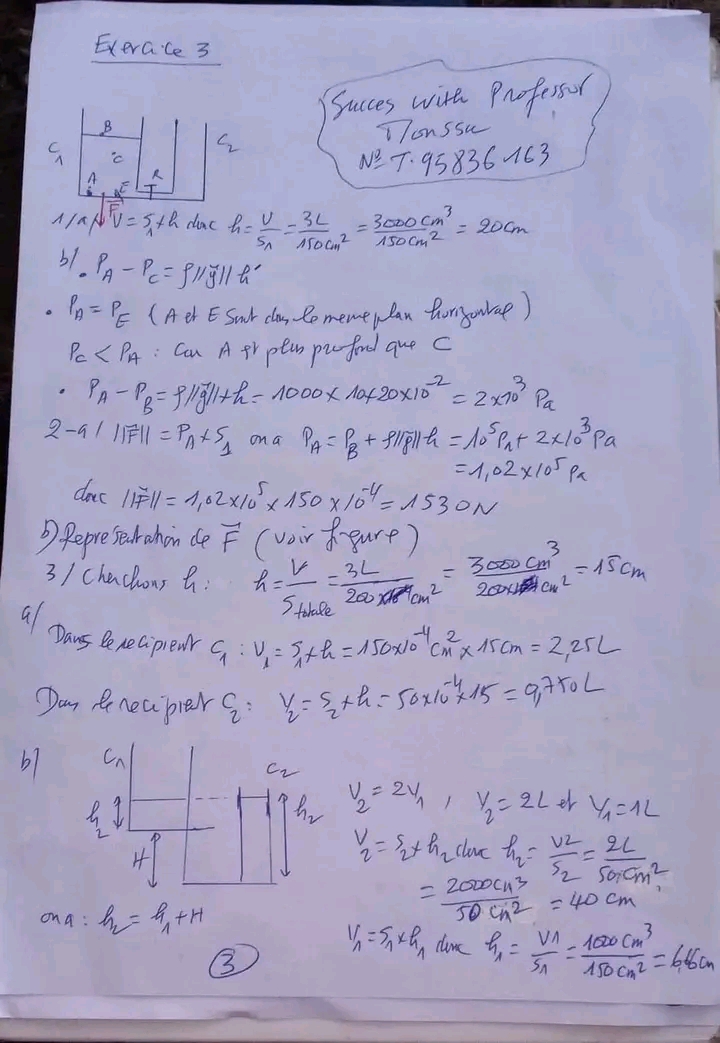 Exercice 3
Succes with Professor
Moussa
N° T. 95836163
C1
B
C2
C
A
E
R
T
F
1/a/ V = S1 × h donc h = V/S1 = 3L/150cm² = 3000cm³/150cm² = 20cm
b/ . PA − PC = ρ||g⃗|| h'
. PA = PE ( A et E sont dans le meme plan horizontal )
PC < PA : Car A est plus profond que C
. PA − PB = ρ||g⃗|| × h = 1000 × 10 × 20 × 10⁻² = 2×10³ Pa
2-a/ ||F⃗|| = PA × S1 on a PA = PB + ρ||g⃗||h = 10⁵Pa + 2×10³Pa
= 1,02×10⁵ Pa
donc ||F⃗|| = 1,02×10⁵ × 150 × 10⁻⁴ = 1530N
b) Représentation de F⃗ (voir figure)
3/ Cherchons h : h = V/S totale = 3L/200 cm² = 3000cm³/200 cm² = 15cm
a/
Dans le recipient C1 : V1 = S1 × h = 150×10⁻⁴ cm² × 15cm = 2,25L
Dans le recipient C2 : V2 = S2 × h = 50×10⁻⁴×15 = 0,750L
b/
C1
C2
h2
h2
H
V2 = 2V1 , V2 = 2L et V1 = 1L
V2 = S2 × h2 donc h2 = V2/S2 = 2L/50cm²
= 2000cm³/50 cm² = 40 cm
on a : h2 = h1 + H
V1 = S1 × h1 donc h1 = V1/S1 = 1000cm³/150cm² = 6,66cm
3